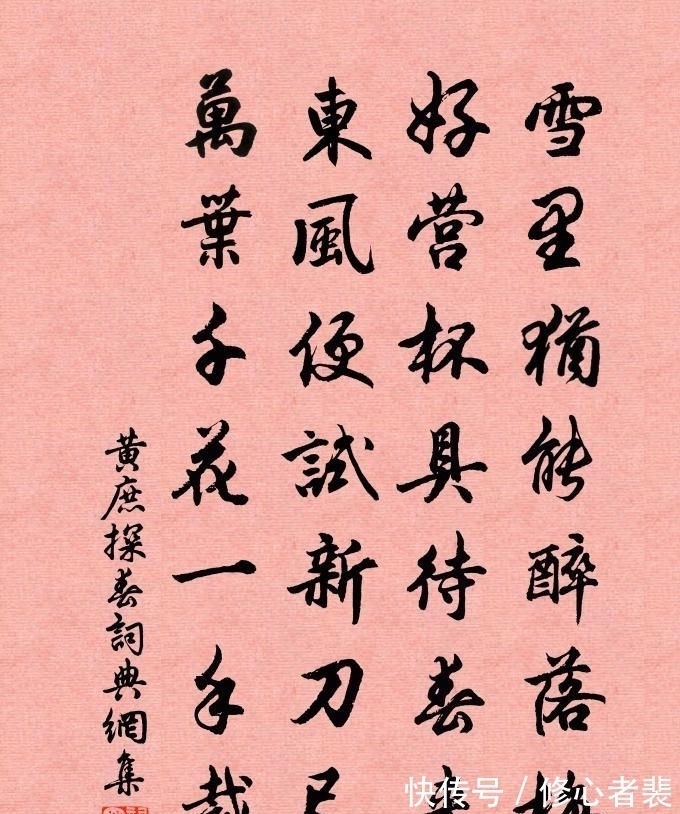 雪里猶能醉落梅
好营杯具待春來
東風便試新刀尺
萬葉千花一手裁
黄庶探春詞典網集
快传号 / 修心者裴